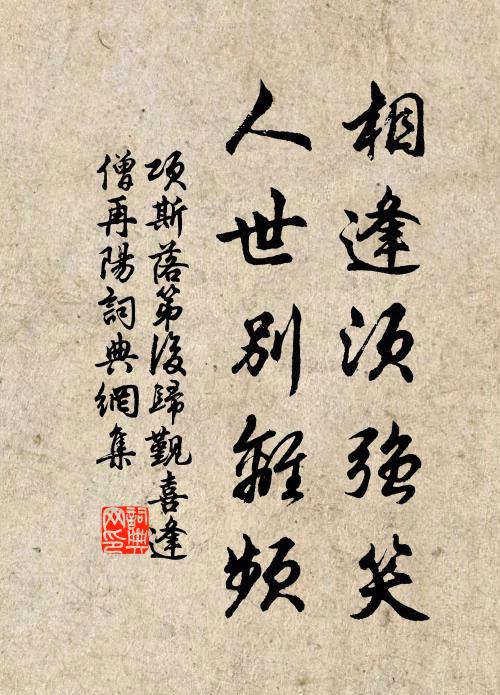 相逢須強笑
人世別離頻
項斯落第後歸覲喜逢
僧再陽詞典網集
詞典
网印